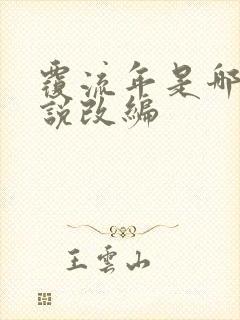 覆流年是哪
說改編
王雲山